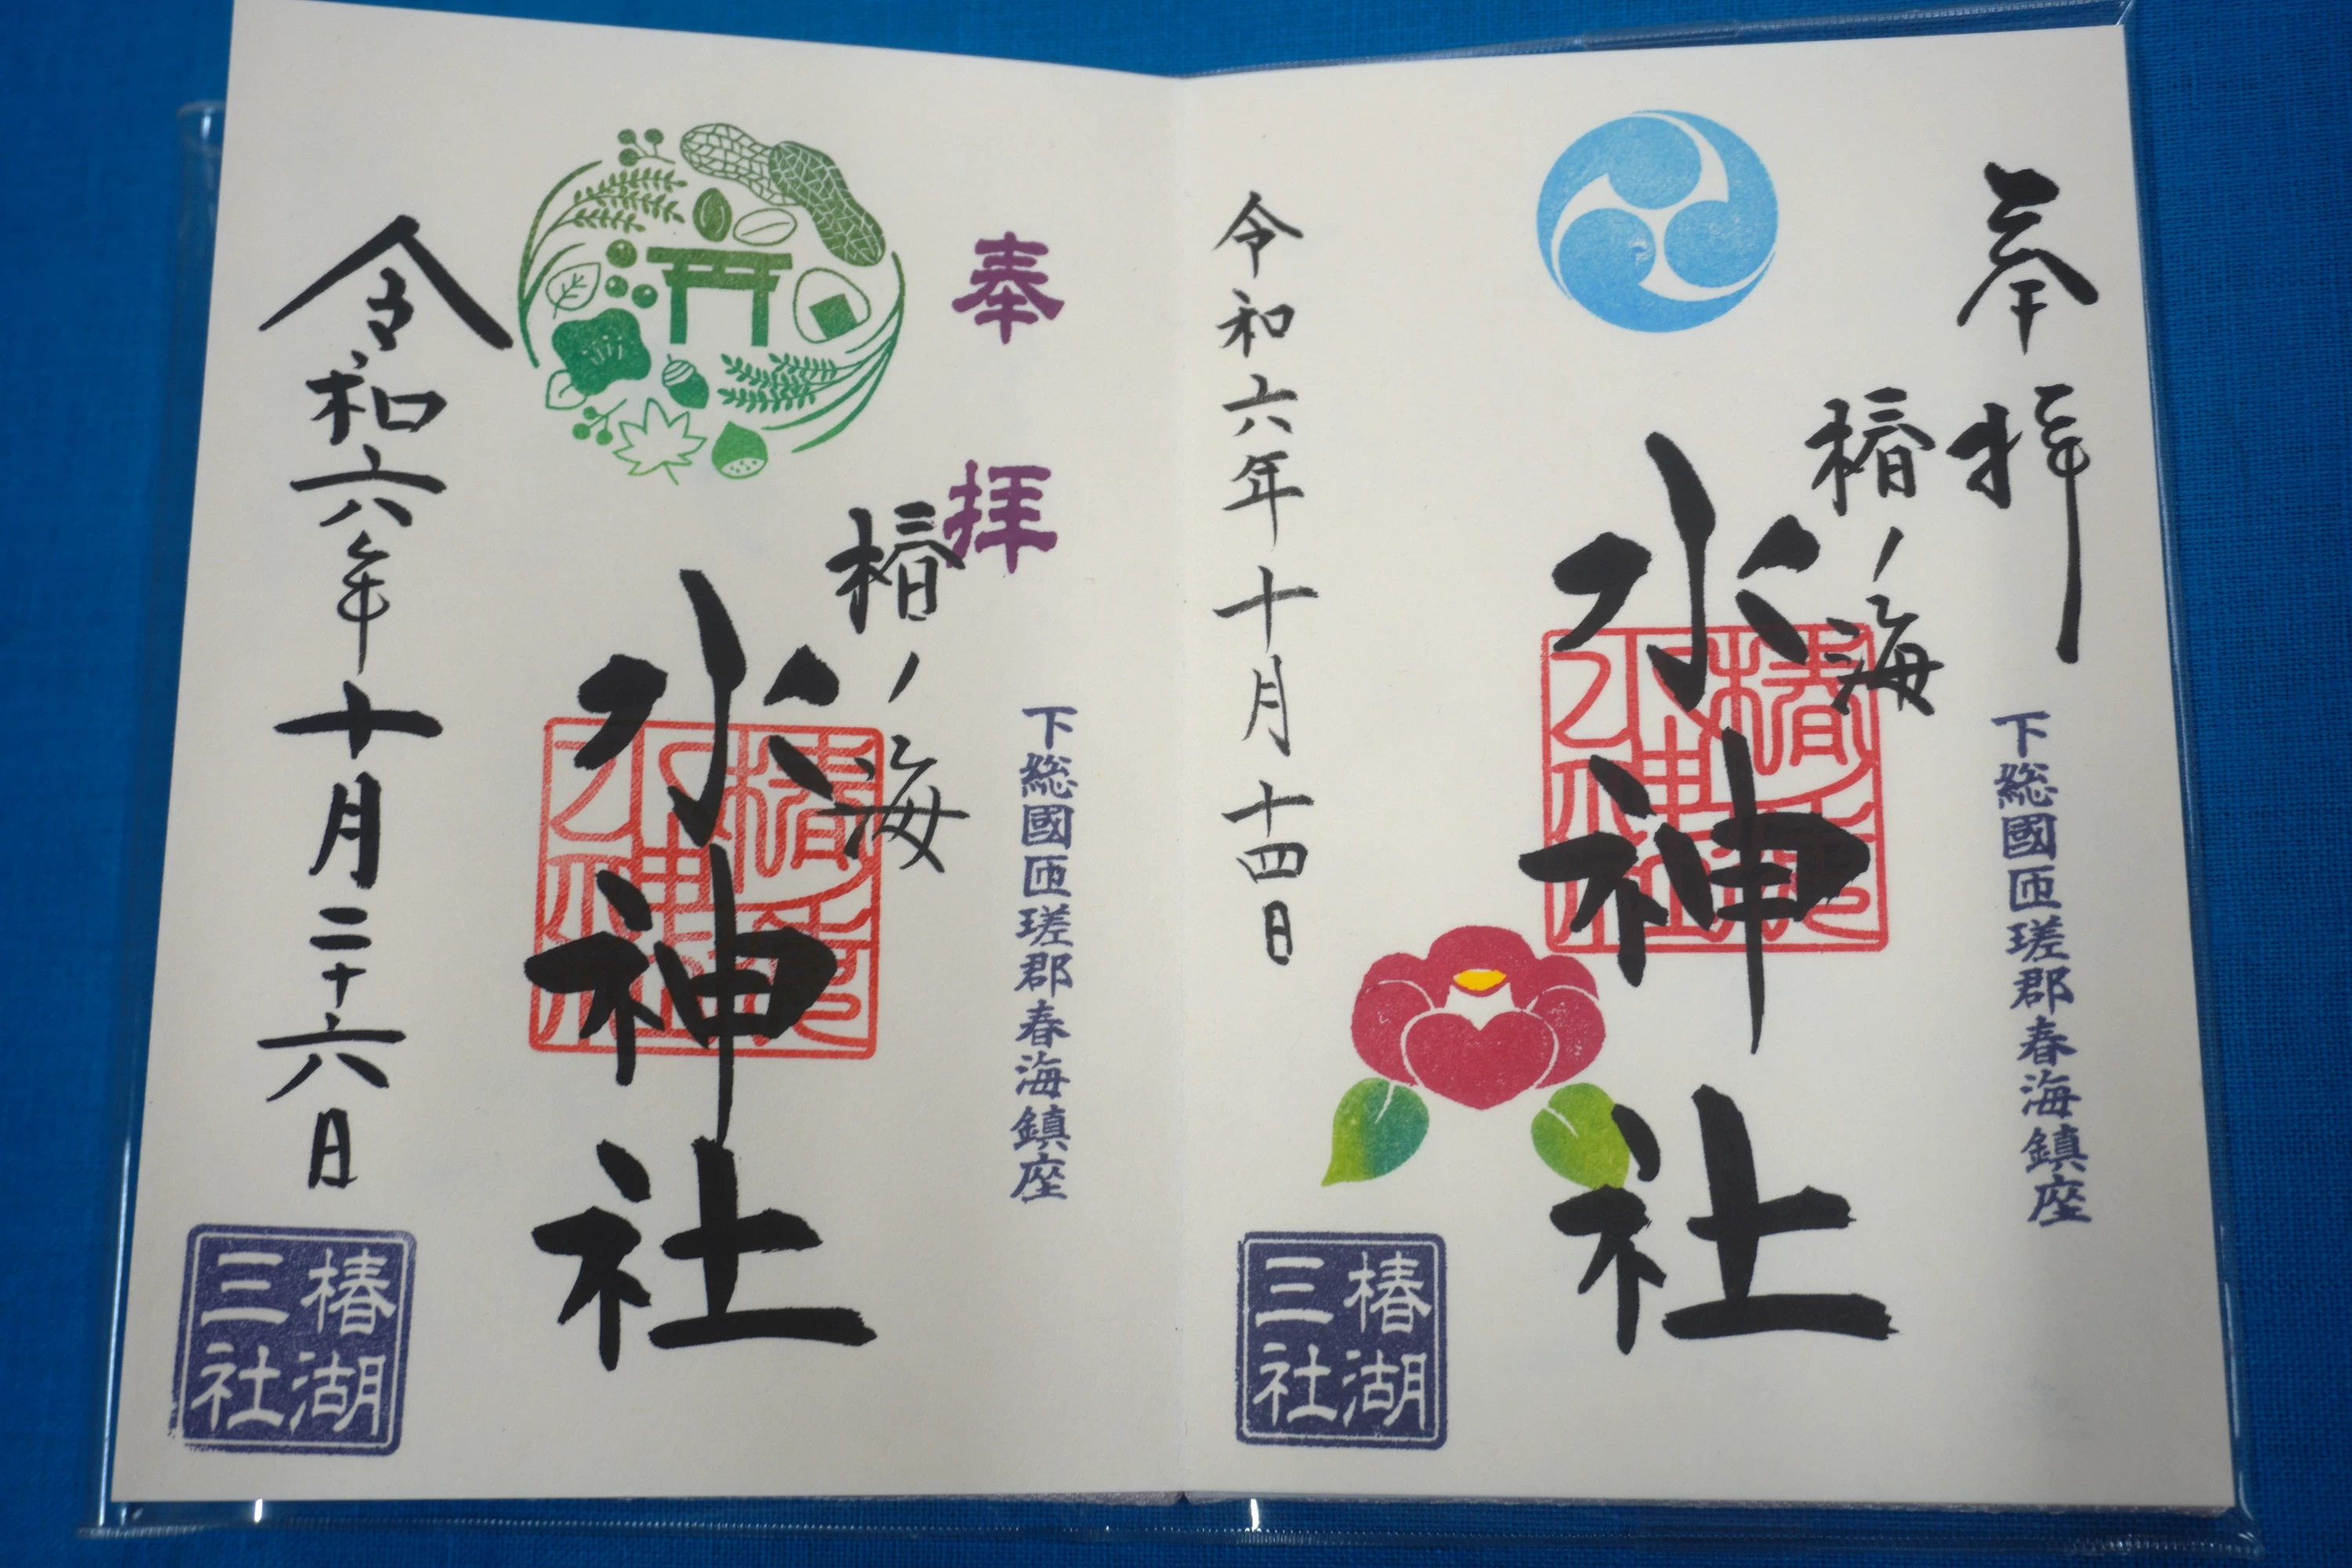 奉拝
下総國匝瑳郡春海鎮座
椿ノ海
水神社
令和六年十月十四日
椿湖
三社
奉拝
下総國匝瑳郡春海鎮座
椿ノ海
水神社
令和六年十月二十六日
椿湖
三社